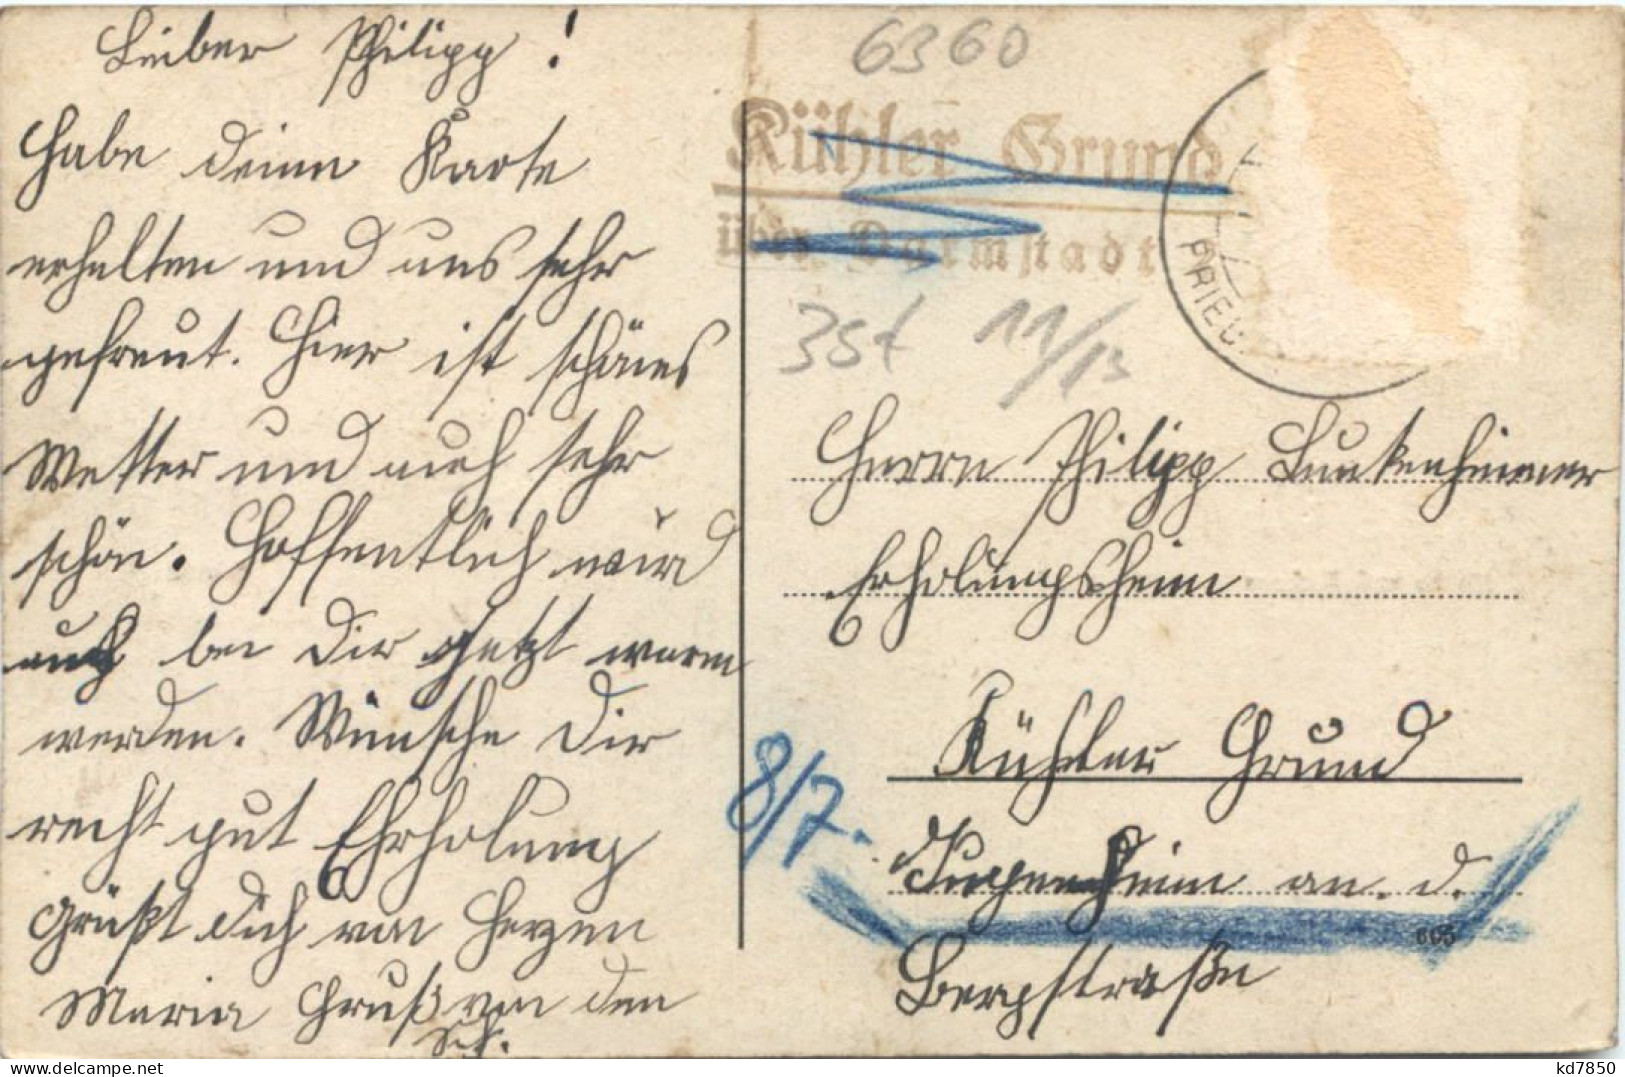 Lieber Philipp!
Habe deine Karte
erhalten und uns sehr
gefreut. Hier ist schönes
Wetter und auch sehr
schön. Hoffentlich wird
auch bei Dir jetzt warm
werden. Wünsche Dir
recht gut Ehrholung
Grüßt dich von Herzen
Maria Gruß von den
Sch.
6360
Kühler Grund
über Darmstadt
PRIEU
35t 11/13
Herrn Philipp Lunkenheimer
Erholungsheim
Kühler Grund
8/7.
Jugenheim an. d.
605
Bergstraße
kd7850